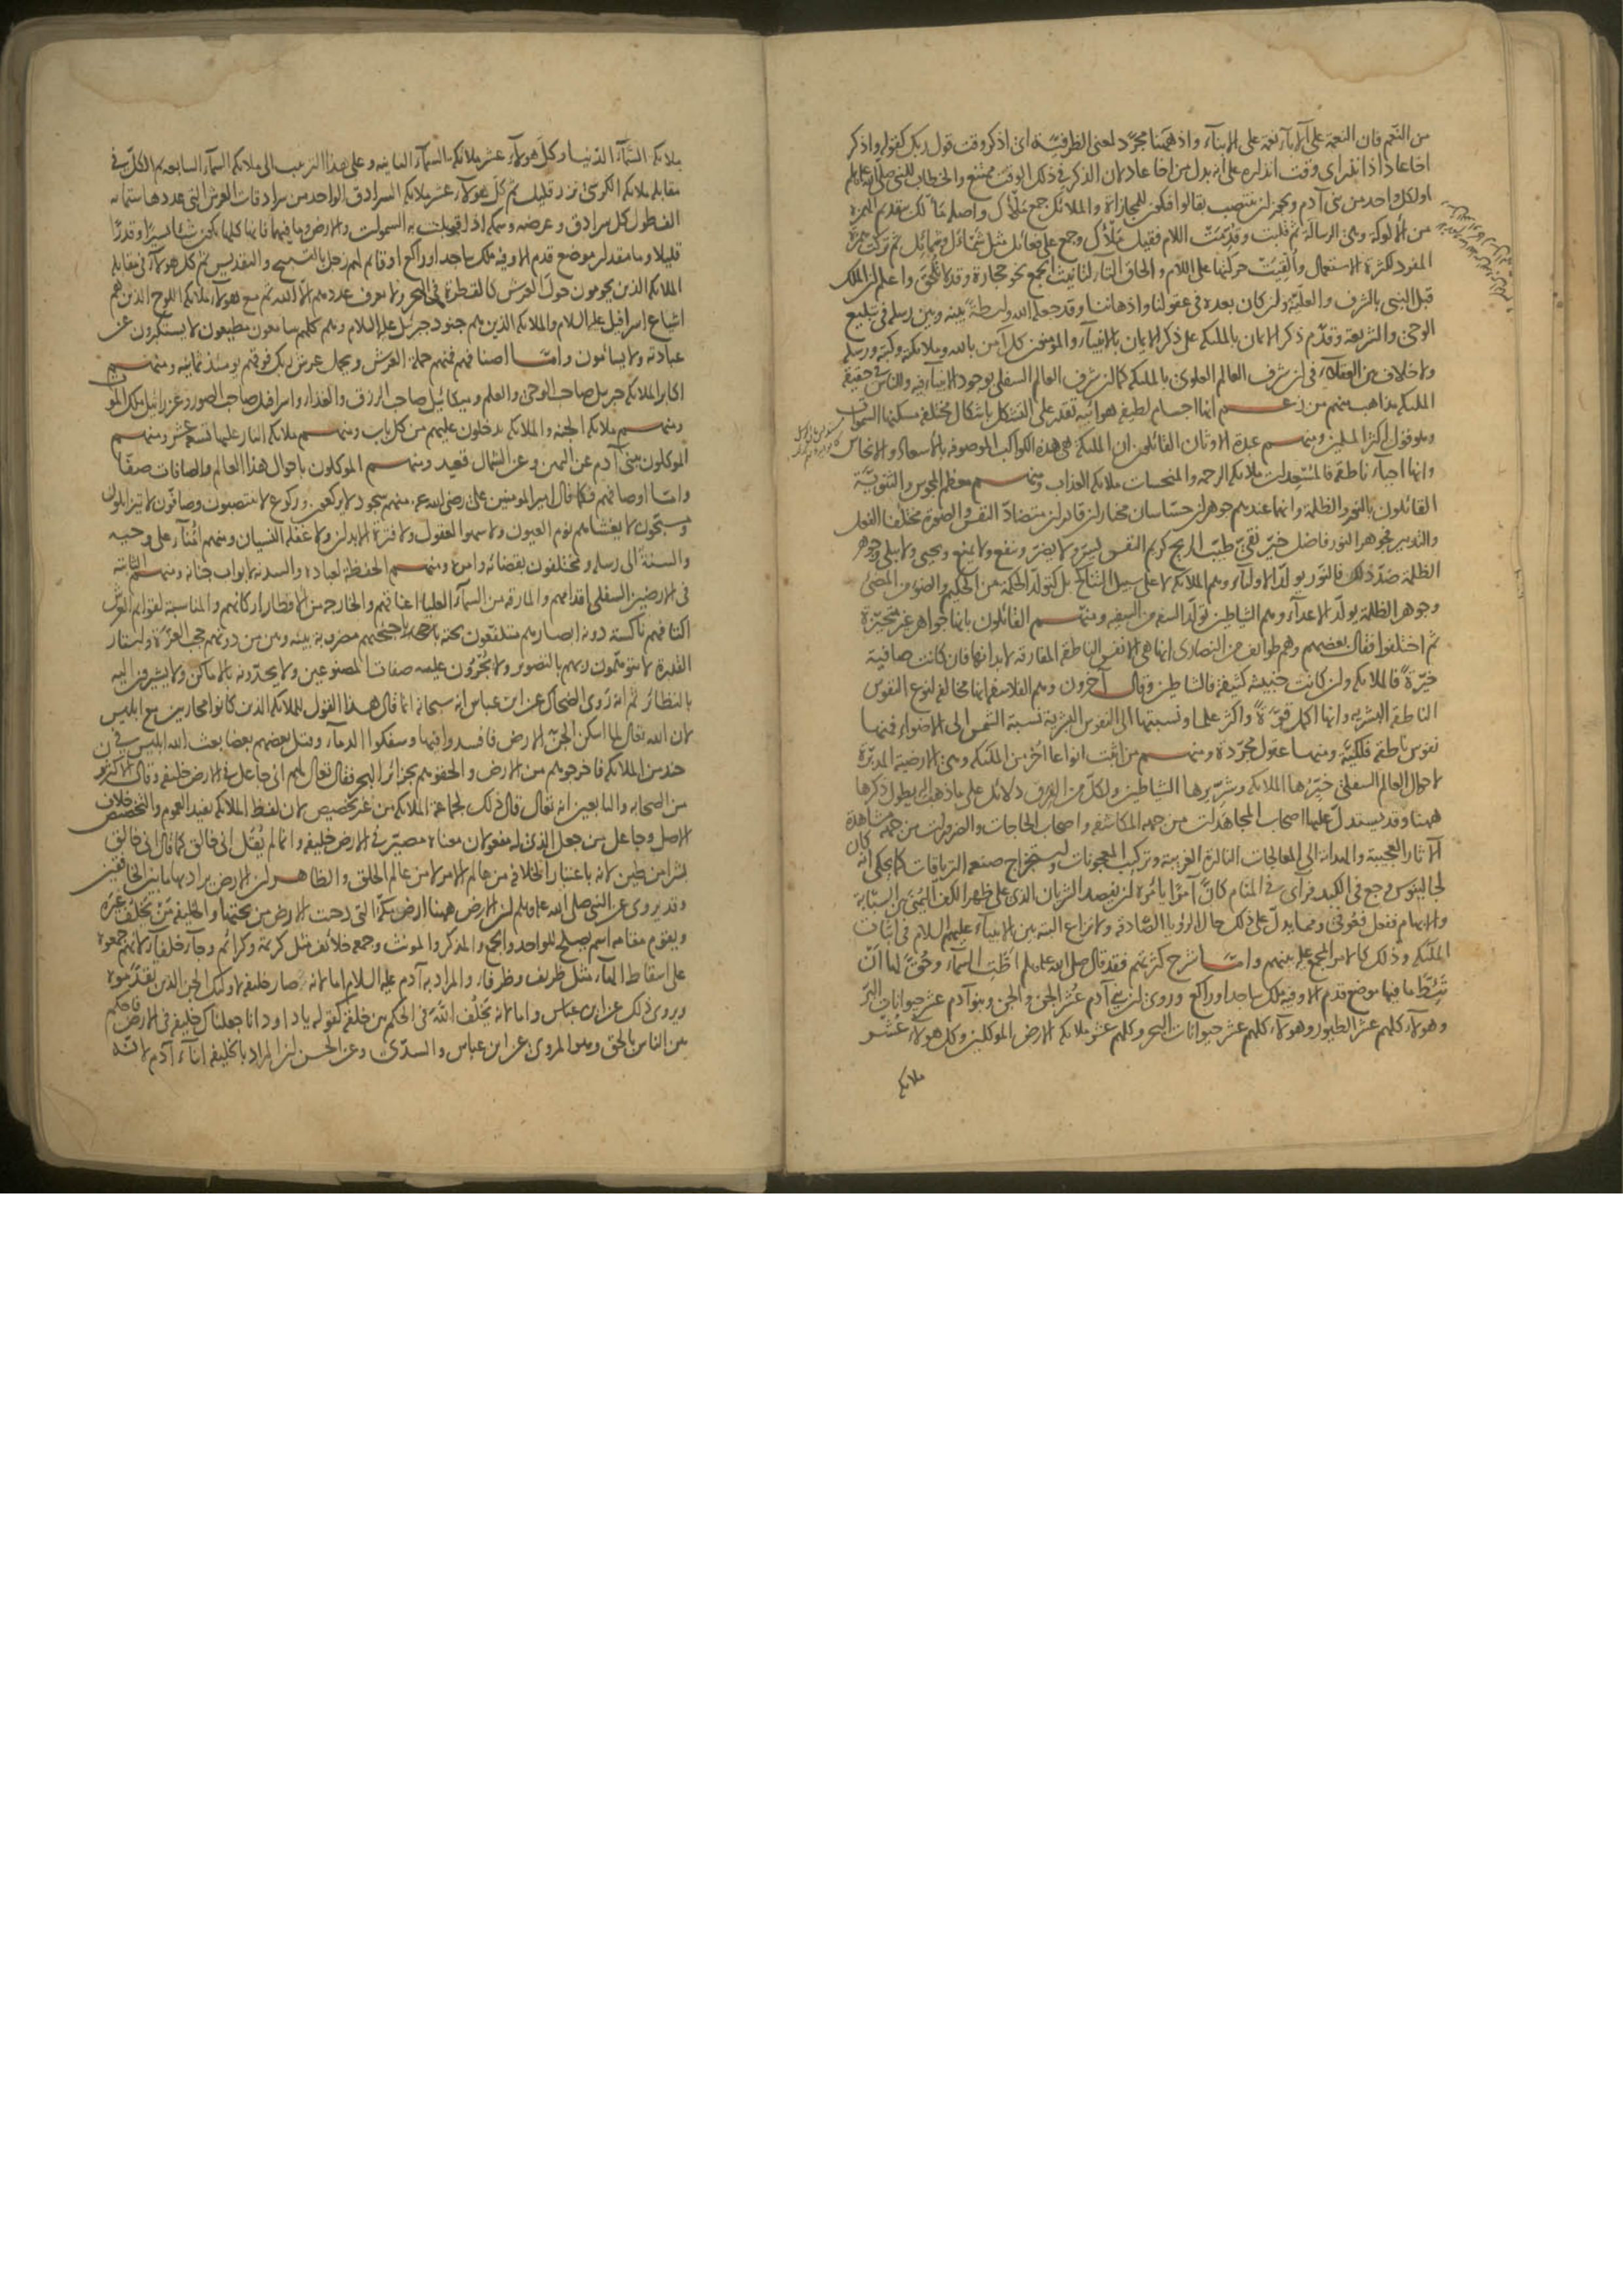 من النعم فان النعمة على الآباء نعمة على الابناء واذ ههنا مجرد لمعنى الظرفية اى اذكر وقت قول ربك كقوله واذكر
اخا عاد اذ انذر اى وقت انذاره على انه بدل من اخا عاد لان الذكر فى ذلك الوقت ممتنع والخطاب للنبى صلى الله عليه وسلم
او لكل واحد من بنى آدم ويجوز ان ينتصب بقالوا فيكون للمجازاة والملائكة جمع ملأك واصله مألك بتقديم الهمزة
من الالوكة وهى الرسالة ثم قلبت وقدمت اللام فقيل ملأك وجمع على فعائل مثل شمأل وشمائل ثم تركت همزة
المفرد لكثرة الاستعمال وألقيت حركتها على اللام والحاق التاء لتانيث الجمع نحو حجارة وقد لا تلحق واعلم ان الملك
قبل النبى بالشرف والعلية وان كان بعده فى عقولنا واذهاننا وقد جعله الله واسطة بينه وبين رسله فى تبليغ
الوحى والشريعة وقدم ذكر الايمان بالملئكة على ذكر الايمان بالانبياء والمؤمنون كل آمن بالله وملائكته وكتبه ورسله
ولا خلاف بين العقلاء فى ان شرف العالم العلوى بالملئكة كما ان شرف العالم السفلى بوجود الانبياء فيه وللناس فى حقيقة
الملئكة مذاهب منهم من زعم انها اجسام لطيفة هوائية تقدر على التشكل باشكال مختلفة مسكنها السموات
وهو قول اكثر المسلمين ومنهم عبدة الاوثان القائلون ان الملئكة هى هذه الكواكب الموصوفة بالاسعاد والانحاس
وانها احياء ناطقة فالمسعدات ملائكة الرحمة والمنحسات ملائكة العذاب ومنهم معظم المجوس والثنوية
القائلون بالنور والظلمة وانهما عندهم جوهران حساسان مختاران قادران متضادا النفس والصورة مختلفا الفعل
والتدبير فجوهر النور فاضل خير نقى طيب الريح كريم النفس يسر ولا يضر وينفع ولا يمنع ويحيى ولا يبلى وجوهر
الظلمة ضد ذلك فالنور يولد الاولياء وهم الملائكة لا على سبيل التناكح بل كتولد الحكمة من الحكيم والضوء من المضئ
وجوهر الظلمة يولد الاعداء وهم الشياطين تولد السفه من السفيه ومنهم القائلون بانها جواهر غير متحيزة
ثم اختلفوا فقال بعضهم وهم طوائف من النصارى انها هى الانفس الناطقة المفارقة لابدانها فان كانت صافية
خيرة فالملائكة وان كانت خبيثة كثيفة فالشياطين وقال آخرون وهم الفلاسفة انها مخالفة لنوع النفوس
الناطقة البشرية وانها اكمل قوة واكثر علما ونسبتها الى النفوس البشرية نسبة الشمس الى الاضواء فمنها
نفوس ناطقة فلكية ومنها عقول مجردة ومنهم من اثبت انواعا اخر من الملئكة وهى الارضية المدبرة
لاحوال العالم السفلى خيرها الملائكة وشريرها الشياطين ولكل من الفرق دلائل على ما ذهب اليه يطول ذكرها
ههنا وقد يستدل عليها اصحاب المجاهدات من جهة المكاشفة واصحاب الحاجات والضرورات من جهة مشاهدة
الآثار العجيبة والهداية الى المعالجات النادرة الغريبة وتركيب المعجونات واستخراج صنعة الترياقات كما يحكى انه كان
لجالينوس وجع فى الكبد فرأى فى المنام كأن آمرا يأمره ان يفصد الشريان الذى على ظهر الكف اليمنى بين السبابة
والابهام ففعل فعوفى ومما يدل على ذلك حال الرؤيا الصادقة ولا نزاع البتة بين الانبياء عليهم السلام فى اثبات
الملئكة وذلك كالامر المجمع عليه بينهم واما شرح كثرتهم فقد قال صلى الله عليه وسلم اطت السماء وحق لها ان
تئط ما فيها موضع قدم الا وفيه ملك ساجد او راكع وروى ان بنى آدم عشر الجن والجن وبنو آدم عشر حيوانات البر
وهولاء كلهم عشر الطيور وهولاء كلهم عشر حيوانات البحر وكلهم عشر ملائكة الارض الموكلين وكل هولاء عشر
ملائكة
ملائكة السماء الدنيا وكل هولاء عشر ملائكة السماء الثانية وعلى هذا الترتيب الى ملائكة السماء السابعة ثم الكل فى
مقابلة ملائكة الكرسى نزر قليل ثم كل هولاء عشر ملائكة السرادق الواحد من سرادقات العرش التى عددها ستمائة
الف طول كل سرادق وعرضه وسمكه اذا قوبلت به السموات والارض وما فيهما فانها كلها يكون شيئا يسيرا وقدرا
قليلا وما مقدار موضع قدم الا وفيه ملك ساجد او راكع او قائم لهم زجل بالتسبيح والتقديس ثم كل هولاء فى مقابلة
الملائكة الذين يحومون حول العرش كالقطرة فى البحر ولا يعرف عددهم الا الله ثم مع هولاء ملائكة اللوح الذين هم
اشياع اسرافيل عليه السلام والملائكة الذين هم جنود جبرئيل عليه السلام وهم كلهم سامعون مطيعون لا يستكبرون عن
عبادته ولا يسامون واما اصنافهم فمنهم حملة العرش ويحمل عرش ربك فوقهم يومئذ ثمانية ومنهم
اكابر الملائكة جبريل صاحب الوحى والعلم وميكائيل صاحب الرزق والغذاء واسرافيل صاحب الصور وعزرائيل ملك الموت
ومنهم ملائكة الجنة والملائكة يدخلون عليهم من كل باب ومنهم ملائكة النار عليها تسعة عشر ومنهم
الموكلون ببنى آدم عن اليمين وعن الشمال قعيد ومنهم الموكلون باحوال هذا العالم والصافات صفا
واما اوصافهم فكما قال امير المومنين على رضى الله عنه منهم سجود لا يركعون وركوع لا ينتصبون وصافون لا يتزايلون
ومسبحون لا يغشاهم نوم العيون ولا سهو العقول ولا فترة الابدان ولا غفلة النسيان ومنهم امناء على وحيه
والسنة الى رسله ومختلفون بقضائه وامره ومنهم الحفظة لعباده والسدنة لابواب جنانه ومنهم الثابتة
فى الارضين السفلى اقدامهم والمارقة من السماء العليا اعناقهم والخارجة من الاقطار اركانهم والمناسبة لقوائم العرش
اكتافهم ناكسة دونه ابصارهم متلفعون تحته باجنحتهم مضروبة بينه وبين من دونهم حجب العزة واستار
القدرة لا يتوهمون ربهم بالتصوير ولا يجرون عليه صفات المصنوعين ولا يحدونه بالاماكن ولا يشيرون اليه
بالنظائر ثم انه روى الضحاك عن ابن عباس انه سبحانه انما قال هذا القول للملائكة الذين كانوا محاربين مع ابليس
لان الله تعالى لما اسكن الجن الارض فافسدوا فيها وسفكوا الدماء وقتل بعضهم بعضا بعث الله ابليس فى
جند من الملائكة فاخرجوهم من الارض والحقوهم بجزائر البحر فقال تعالى لهم انى جاعل فى الارض خليفة وقال الاكثرون
من الصحابة والتابعين انه تعالى قال ذلك لجماعة الملائكة من غير تخصيص لان لفظ الملائكة يفيد العموم والتخصيص خلاف
الاصل وجاعل من جعل الذى له مفعولان معناه مصير فى الارض خليفة وانما لم يقل انى خالق كما قال انى خالق
بشرا من طين لانه باعتبار الخلافة من عالم الامر لا من عالم الخلق والظاهر ان الارض يراد بها ما بين الخافقين
وقد يروى عن النبى صلى الله عليه وسلم ان الارض ههنا ارض مكة التى دحيت الارض من تحتها والخليفة من يخلف غيره
ويقوم مقامه اسم يصلح للواحد والجمع والمذكر والمونث وجمعه خلائف مثل كريمة وكرائم وجاء خلفاء لانهم جمعوه
على اسقاط الهاء مثل ظريف وظرفاء والمراد به آدم عليه السلام اما لانه صار خليفة لاولئك الجن الذين تقدموه
ويروى ذلك عن ابن عباس واما لانه يخلف الله فى الحكم بين خلقه كقوله يا داود انا جعلناك خليفة فى الارض فاحكم
بين الناس بالحق وهو المروى عن ابن عباس والسدى وعن الحسن ان المراد بالخليفة ابناء آدم لانه